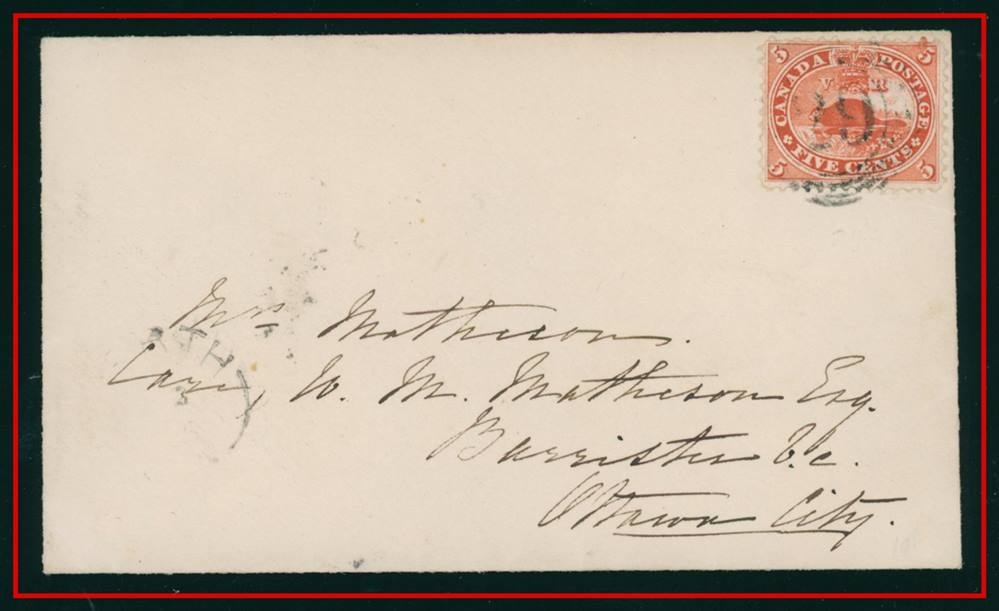 5 CANADA POSTAGE 5
V R
39
5 FIVE CENTS 5
Mrs Matheson.
Care, W. M. Matheson Esq.
Barrister &c.
Ottawa City.